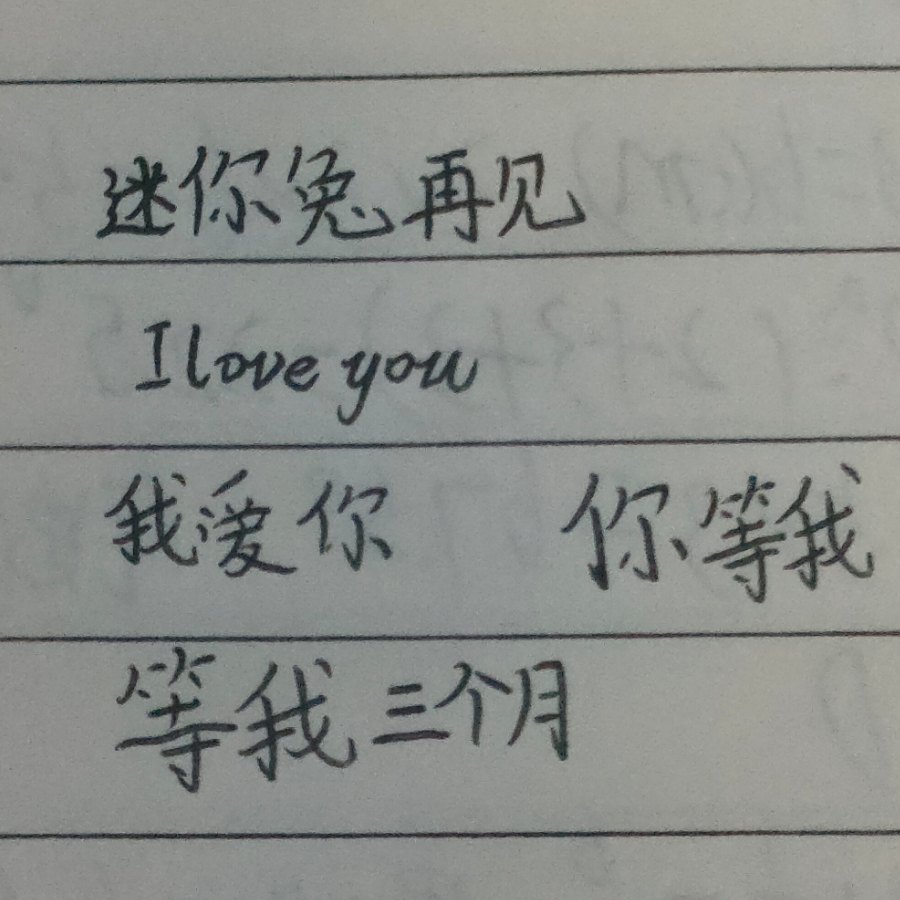 迷你兔再见
I love you
我爱你 你等我
等我三个月